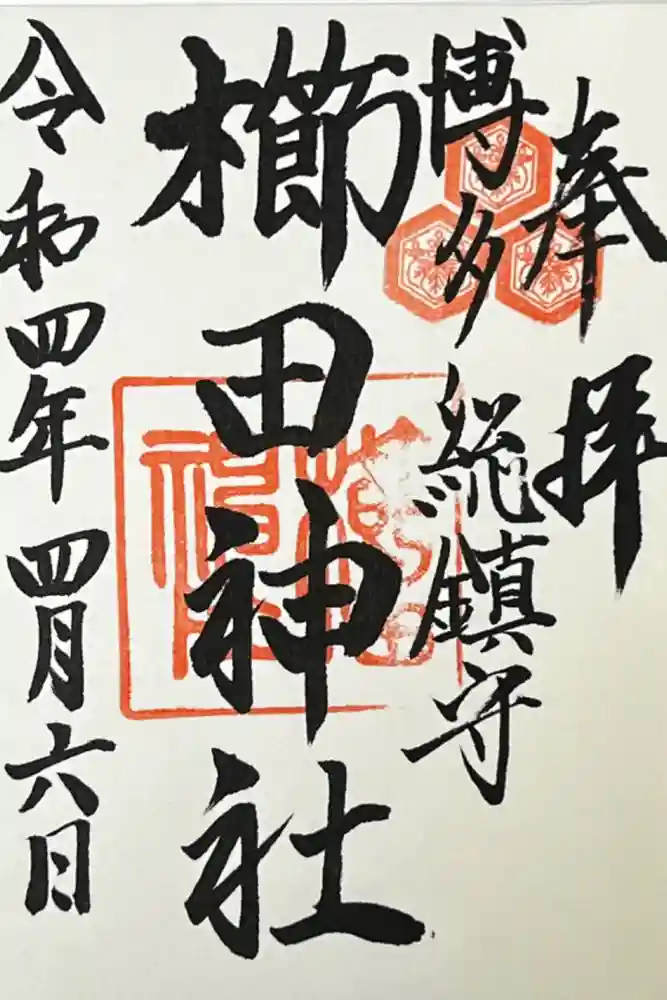 奉拝
博多総鎮守
櫛田神社
令和四年四月六日